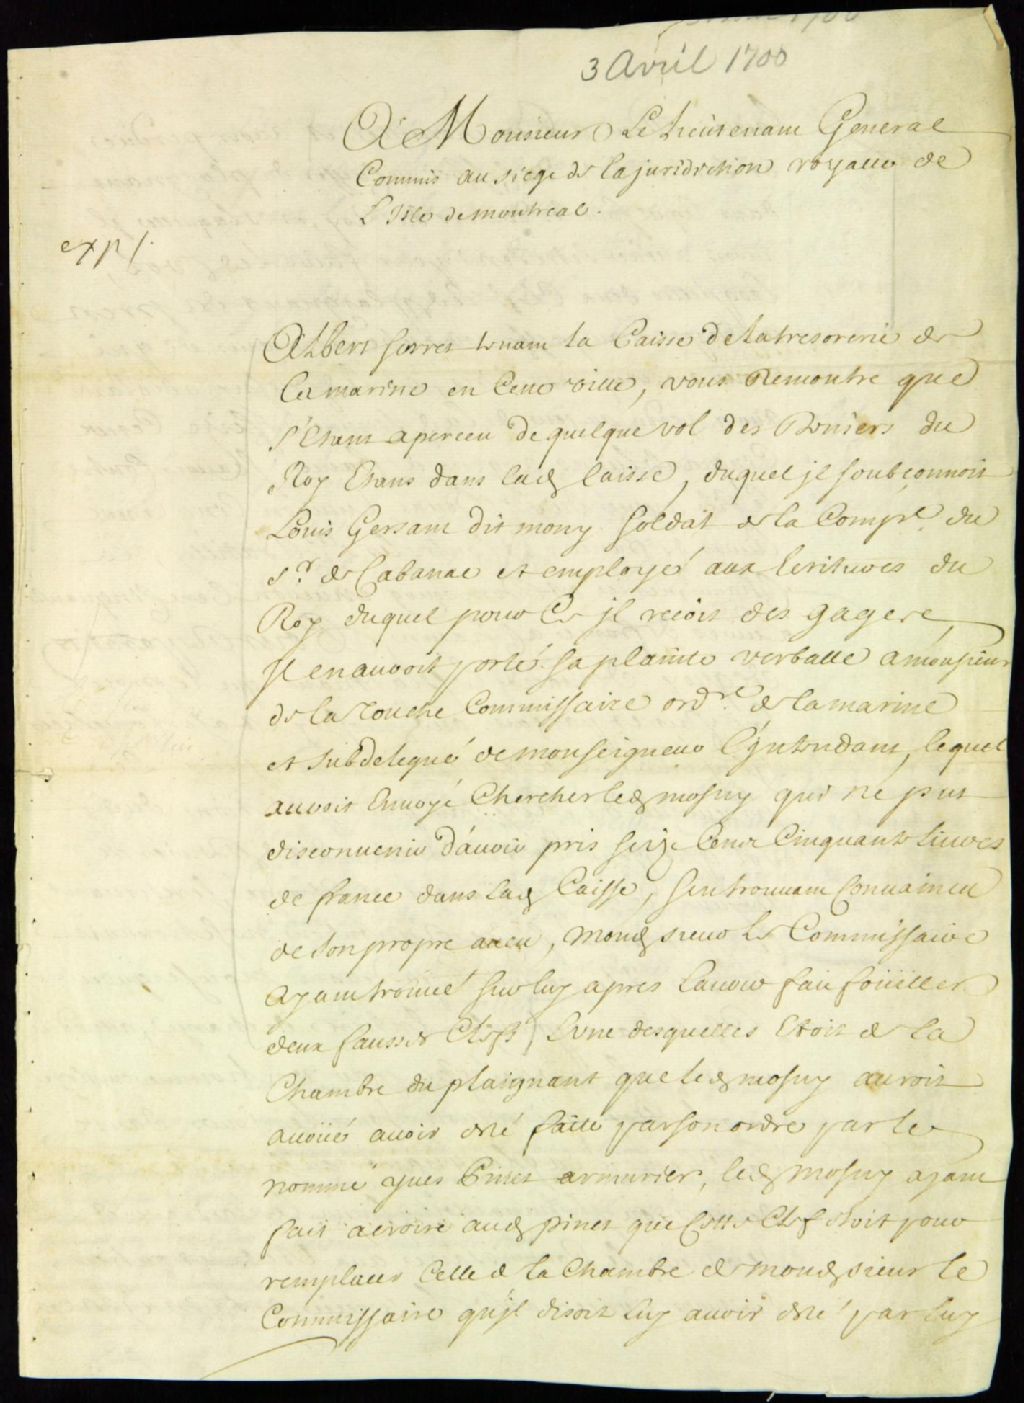 3 Avril 1700
A Monsieur Le Lieutenant General
Commis au siege de la jurisdiction royalle de
L'Isle de montreal.
exp /.
Albert forret tenant la Caisse de la tresorerie de
la marine en Cette ville, vous Remontre que
s'Etant aperceu de quelque vol des Deniers du
Roy Etans dans lad Caisse, duquel jl soubçonnoit
Louis Gersant dit mosny soldat de la Comp.e du
s.r de Cabanac et employé aux Ecritures du
Roy duquel pour Ce jl recoit des gages
jl en auroit porté sa plainte verballe a monsieur
de la Touche Commissaire ord.re de la marine
et subdelegué de monseigneur L'jntendant, lequel
auroit Envoyé Chercher led mosny qui ne put
disconvenir d'avoir pris seize Cent Cinquante livres
de france dans lad Caisse, se trouvant Convaincu
de son propre aueu, mond sieur le Commissaire
ayant trouvé sur luy apres l'avoir fait foüiller
deux fausses Clefs L'une desquelles Etoit de la
Chambre du plaignant que led mosny auroit
avoüé avoir eté faitte par son ordre par le
nommé yves Pinet armurier, led mosny ayant
fait acroire aud pinet que Cette Clef etoit pour
remplacer Celle de la Chambre de mond sieur le
Commissaire qu'jl disoit luy avoir eté par luy